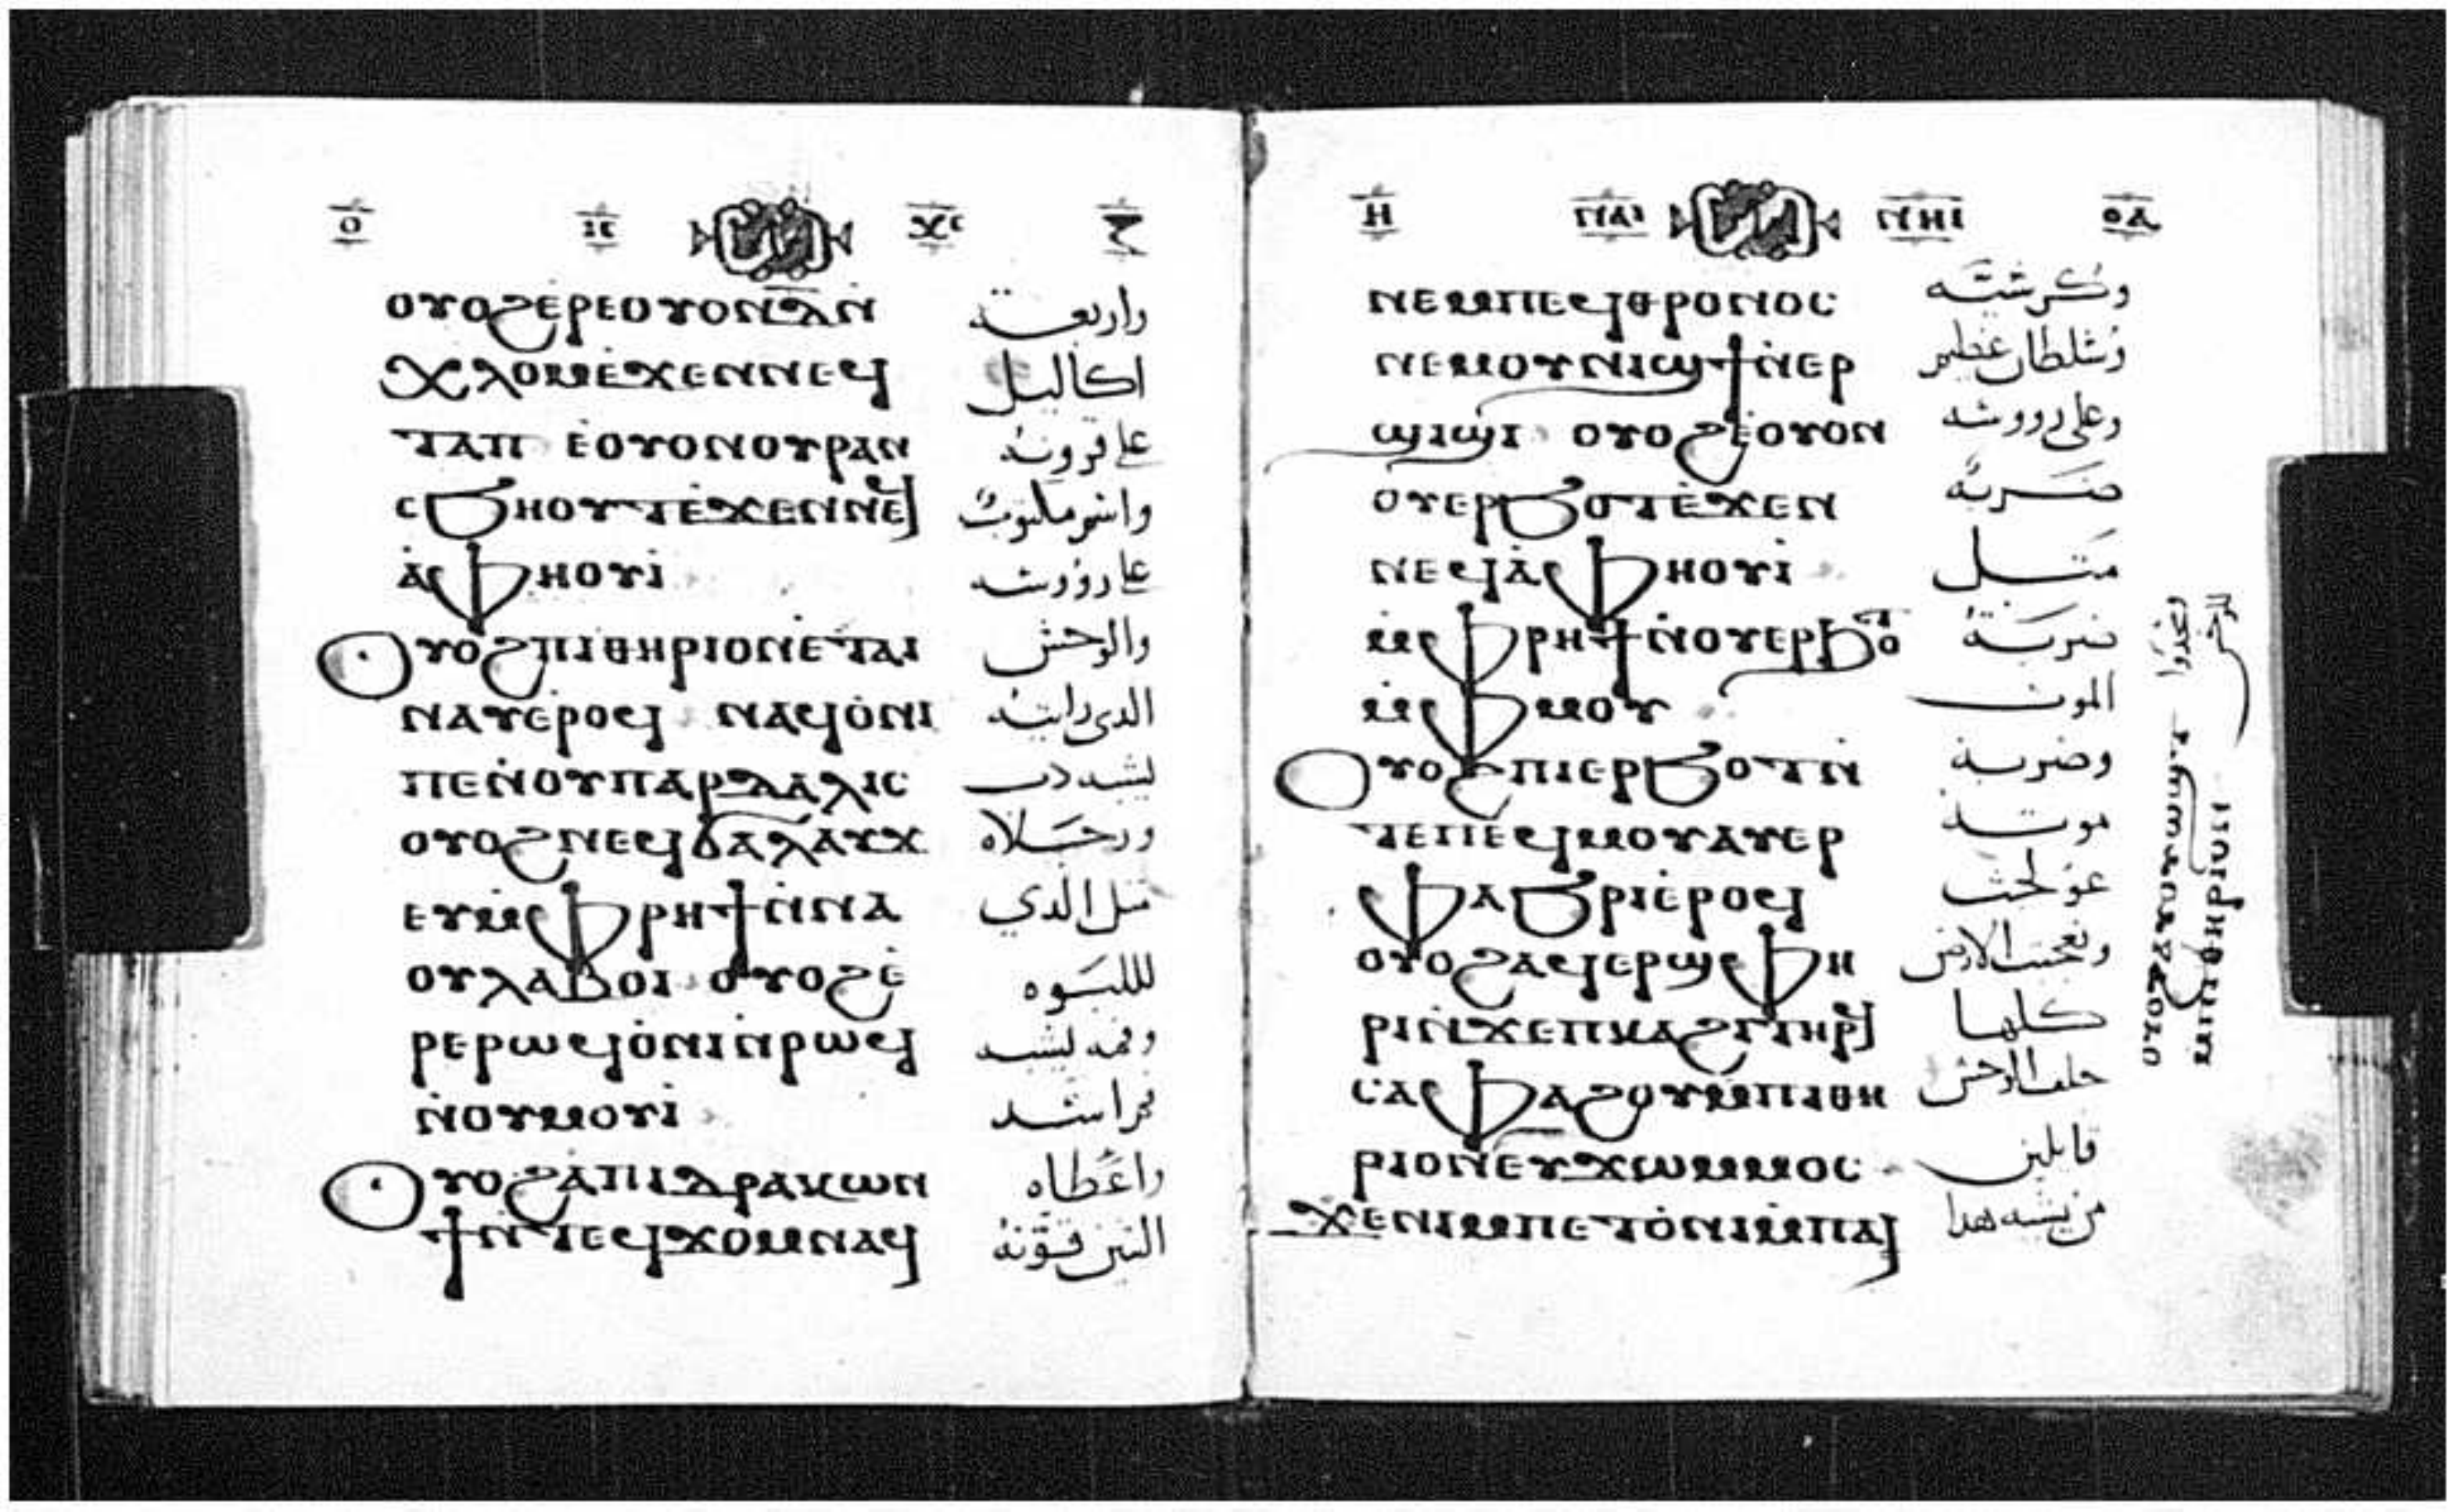 ⲟ ⲓⲥ ⲭⲥ
ⲟⲩⲟϩⲉⲣⲉⲟⲩⲟⲛⲇⲛ̀ واربعة
ⲭⲗⲟⲙⲉ̀ϫⲉⲛⲛⲉϥ اكاليل
ⲧⲁⲡ ⲉ̀ⲟⲩⲟⲛⲟⲩⲣⲁⲛ على قرونه
ⲥϧⲏⲟⲩⲧⲉ̀ϫⲉⲛⲛⲉϥ
ⲁ̀ⲫⲏⲟⲩⲓ̀
ⲟⲩⲟϩⲡⲓⲑⲏⲣⲓⲟⲛⲉ̀ⲧⲁⲓ والوحش
ⲛⲁⲩⲉ̀ⲣⲟϥ ⲛⲁϥⲟ̀ⲛⲓ الدى رايته
ⲡⲉⲛ̀ⲟⲩⲡⲁⲣⲇⲁⲗⲓⲥ يشبه دب
ⲟⲩⲟϩⲛⲉϥϭⲁⲗⲁⲩϫ ورجلاه
ⲉⲩⲙ̀ⲫⲣⲏϯⲛ̀ⲛⲁ مثل الذي
ⲟⲩⲗⲁⲃⲟⲓ ⲟⲩⲟϩⲉ̀ لللبوه
ⲣⲉⲣⲱϥⲟ̀ⲛⲓⲛ̀ⲣⲱϥ وفمه يشبه
ⲛ̀ⲟⲩⲙⲟⲩⲓ̀ فم اسد
ⲟⲩⲟϩⲁ̀ⲡⲓⲇⲣⲁⲕⲱⲛ واعطاه
ϯⲛ̀ⲧⲉϥϫⲟⲙⲛⲁϥ التنين قوته
ⲏ ⲛⲁⲓ ⲛⲏⲓ ⲟⲁ
ⲛⲉⲙⲡⲉϥⲑⲣⲟⲛⲟⲥ وكرسيه
ⲛⲉⲙⲟⲩⲛⲓϣϯⲛ̀ⲉⲣ وسلطان عظيم
ϣⲓϣⲓ ⲟⲩⲟϩⲉ̀ⲟⲩⲟⲛ وعلى رووسه
ⲟⲩⲉⲣϧⲟⲧⲉ̀ϫⲉⲛ ضربه
ⲛⲉϥⲁ̀ⲫⲏⲟⲩⲓ̀ متل
ⲙ̀ⲫⲣⲏϯⲛ̀ⲟⲩⲉⲣϧⲟⲧ ضربة
ⲙ̀ⲫⲙⲟⲩ الموت
ⲟⲩⲟϩⲡⲓⲉⲣϧⲟⲧⲛ̀ وضربة
ⲧⲉⲡⲉϥⲙⲟⲩⲁⲩⲉⲣ موته
ⲫⲁϧⲣⲓⲉ̀ⲣⲟϥ عولجت
ⲟⲩⲟϩⲁϥⲉⲣϣⲫⲏ وتعجبت الارض
ⲣⲓⲛ̀ϫⲉⲡⲕⲁϩⲧⲏⲣϥ كلها
ⲥⲁⲫⲁϩⲟⲩⲙ̀ⲡⲓⲑⲏ خلف الوحش
ⲣⲓⲟⲛⲉⲩϫⲱⲙⲙⲟⲥ قايلين
ϫⲉⲛⲓⲙⲡⲉⲧⲟ̀ⲛⲓⲙ̀ⲡⲁⲓ من يشبه هدا
ⲟⲩⲟϩⲁⲩⲟⲩⲱϣⲧ
ⲙⲡⲓⲑⲏⲣⲓⲟⲛ